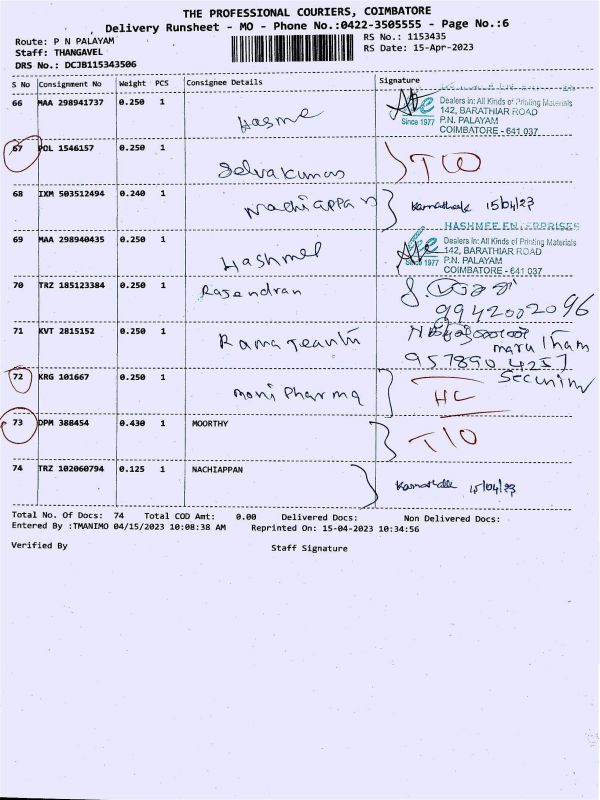 THE PROFESSIONAL COURIERS, COIMBATORE
Delivery Runsheet - MO - Phone No.:0422-3505555 - Page No.:6
Route: P N PALAYAM
Staff: THANGAVEL
DRS No.: DCJB115343506
RS No.: 1153435
RS Date: 15-Apr-2023
S No Consignment No Weight PCS Consignee Details Signature
66 MAA 298941737 0.250 1 Hasme
Dealers in: All Kinds of Printing Materials
142, BARATHIAR ROAD
Since 1977 P.N. PALAYAM
COIMBATORE - 641 037
67 POL 1546157 0.250 1 Selvakumar
68 IXM 503512494 0.240 1 Nachiappan 15/04/23
HASHMEE ENTERPRISES
69 MAA 298940435 0.250 1 Hashmee
Dealers in: All Kinds of Printing Materials
142, BARATHIAR ROAD
Since 1977 P.N. PALAYAM
COIMBATORE - 641 037
70 TRZ 185123384 0.250 1 Rajendran
9942002096
71 KVT 2815152 0.250 1
957890 4257
Security
72 KRG 101667 0.250 1 Moni Pharma HC
73 DPM 388454 0.430 1 MOORTHY T/O
74 TRZ 102060794 0.125 1 NACHIAPPAN 15/04/23
Total No. Of Docs: 74 Total COD Amt: 0.00 Delivered Docs: Non Delivered Docs:
Entered By :TMANIMO 04/15/2023 10:08:38 AM Reprinted On: 15-04-2023 10:34:56
Verified By Staff Signature